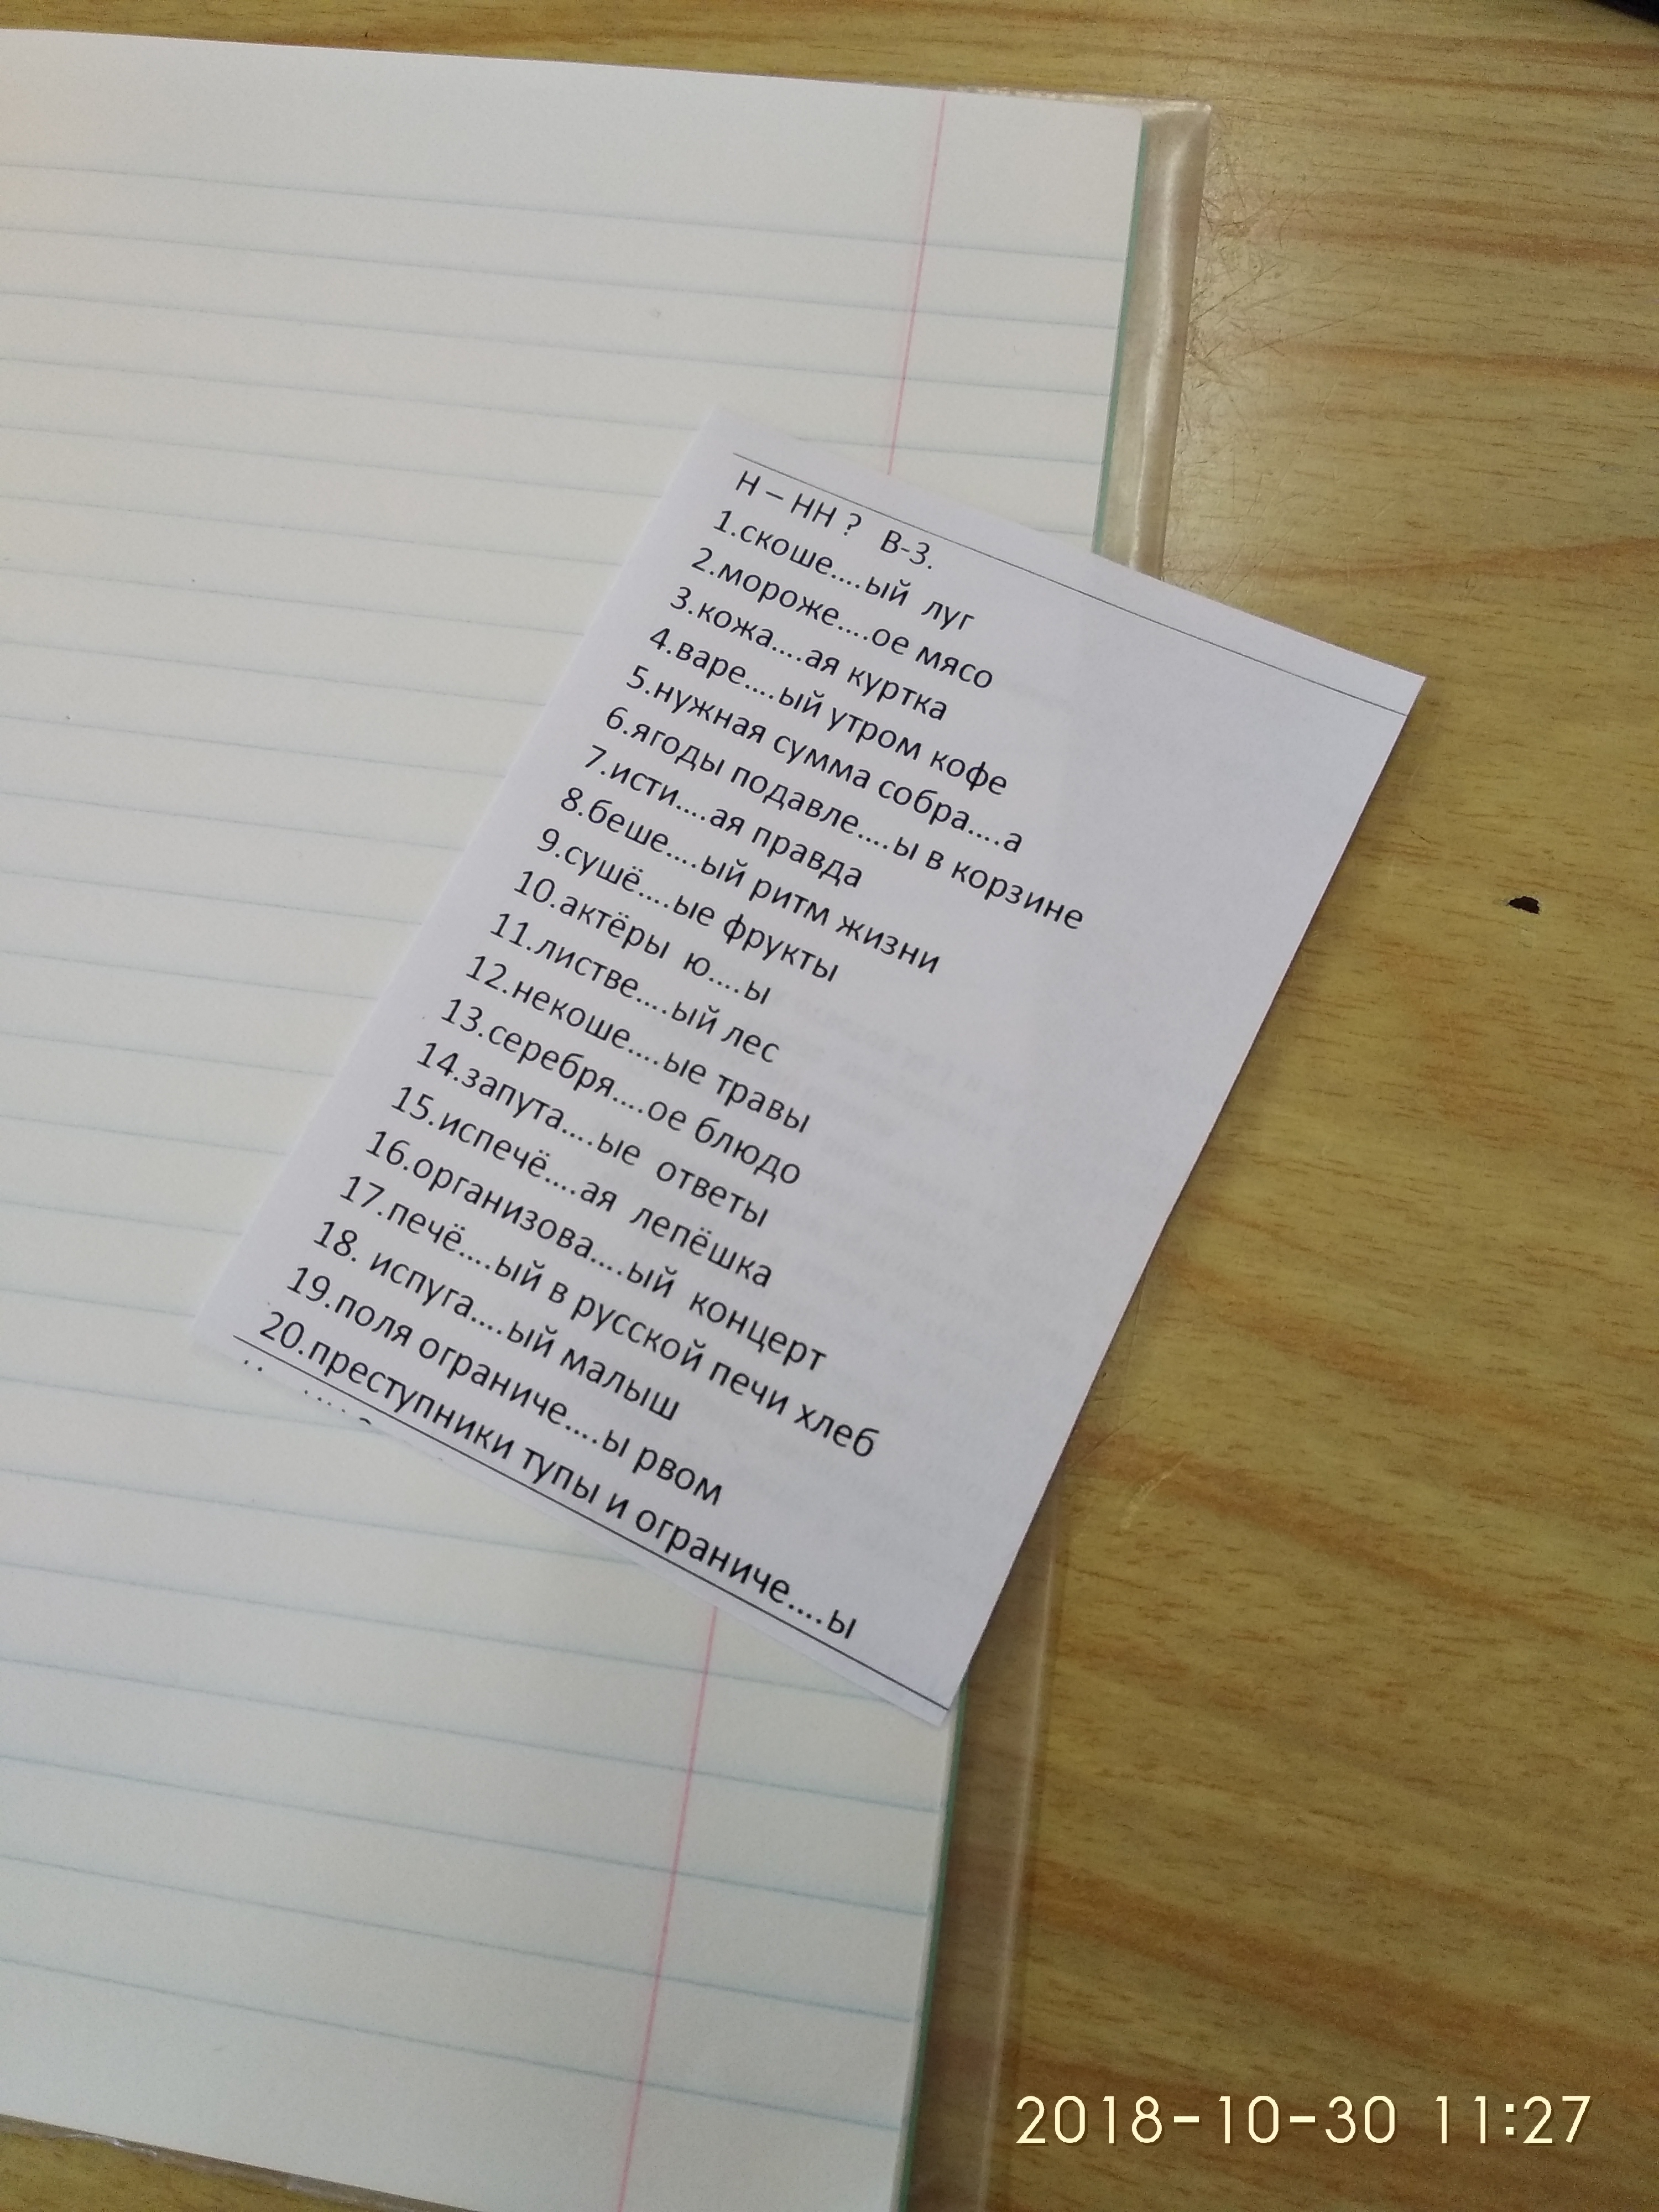 Н – НН ? В-3.
1.скоше....ый луг
2.мороже....ое мясо
3.кожа....ая куртка
4.варе....ый утром кофе
5.нужная сумма собра....а
6.ягоды подавле....ы в корзине
7.исти....ая правда
8.беше....ый ритм жизни
9.сушё....ые фрукты
10.актёры ю....ы
11.листве....ый лес
12.некоше....ые травы
13.серебря....ое блюдо
14.запута....ые ответы
15.испечё....ая лепёшка
16.организова....ый концерт
17.печё....ый в русской печи хлеб
18. испуга....ый малыш
19.поля ограниче....ы рвом
20.преступники тупы и ограниче....ы
2018-10-30 11:27